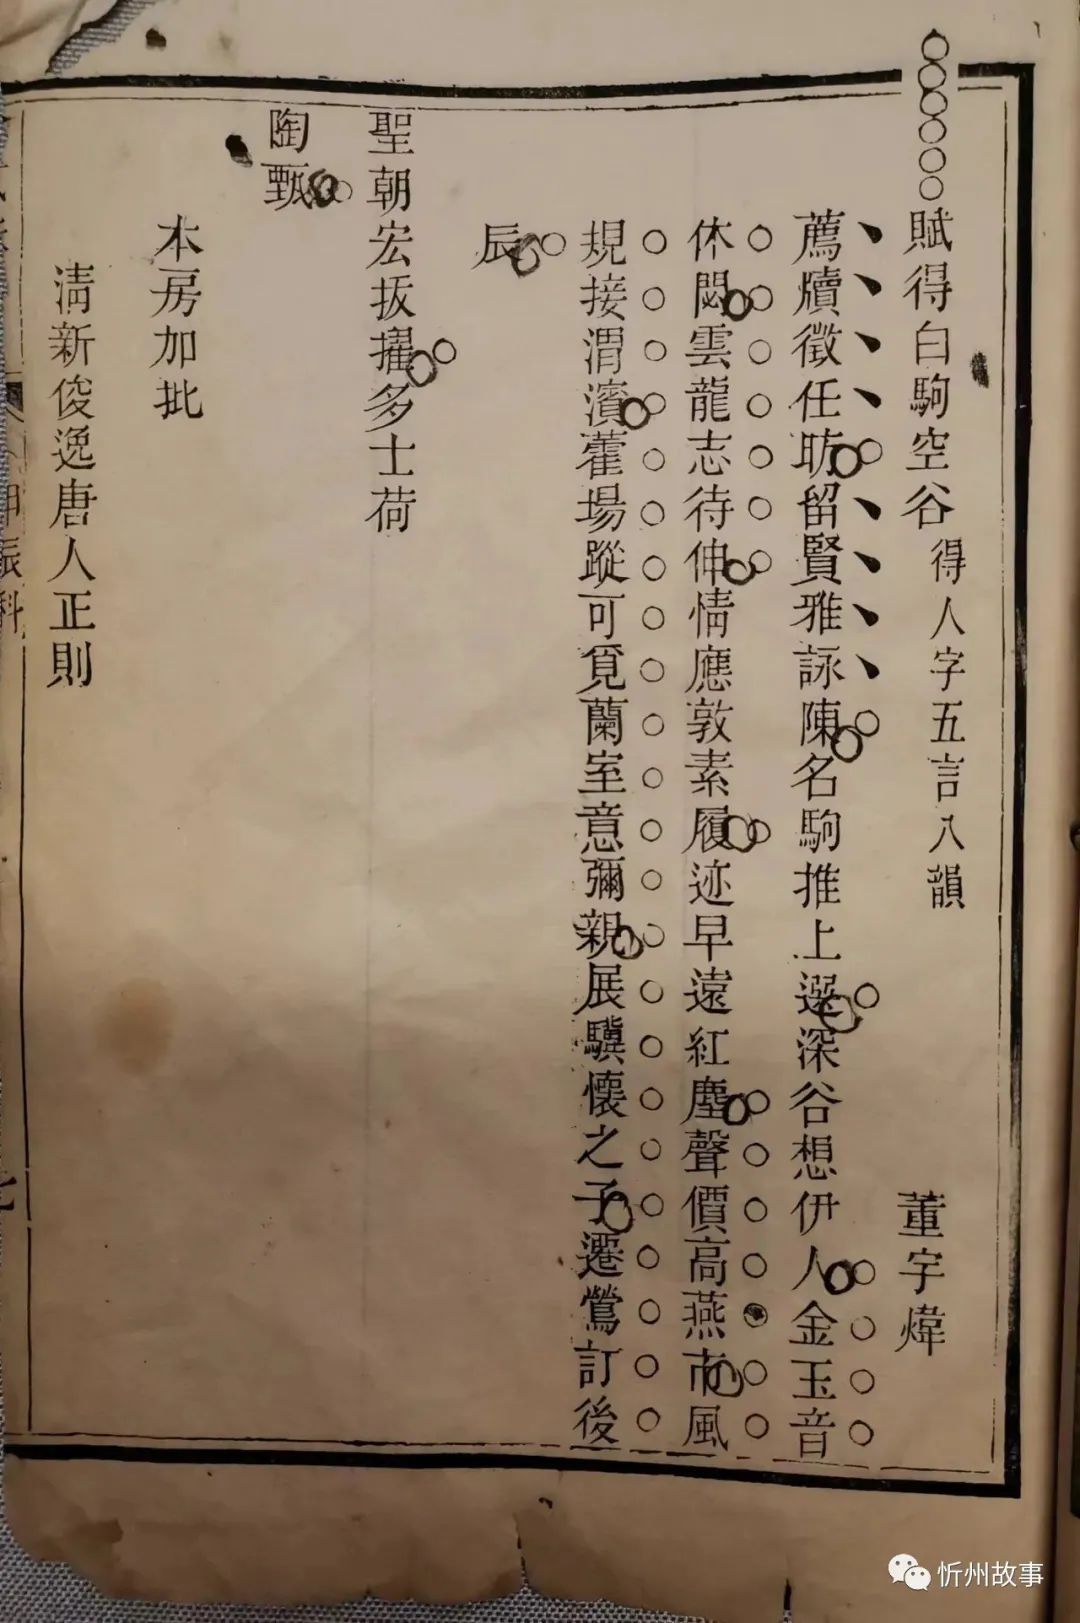 賦得白駒空谷得人字五言八韻
董宇煒
薦牘徵任昉留賢雅詠陳名駒推上選深谷想伊人金玉音
休閟雲龍志待伸情應敦素履迹早遠紅塵聲價高燕市風
規接渭濱藿場蹤可覓蘭室意彌親展驥懷之子遷鶯訂後
辰
聖朝宏拔擢多士荷
陶甄
本房加批
清新俊逸唐人正則
忻州故事